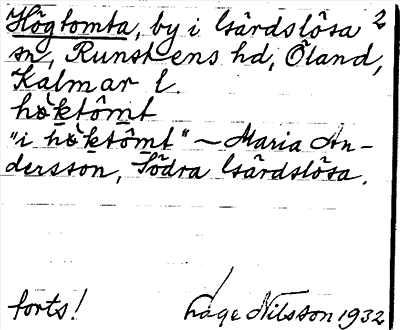 Högtomta, by i Gärdslösa 2
sn, Runstens hd, Öland,
Kalmar l.
hö̀ktômt
"i hö̀ktômt" — Maria An-
dersson, Södra Gärdslösa.
forts! Åage Nilsson 1932